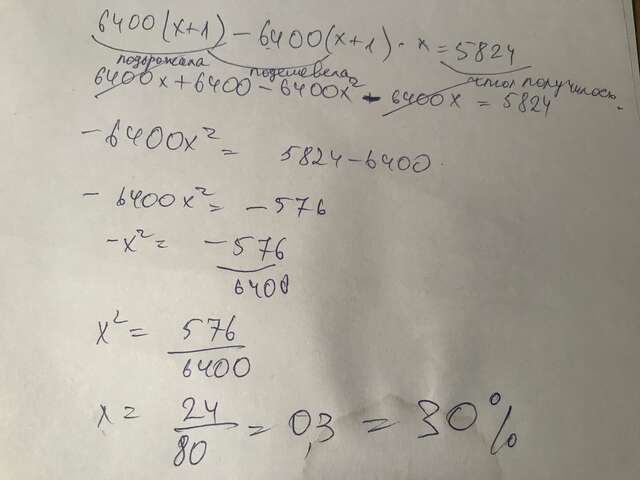 6400(x+1) - 6400(x+1) · x = 5824
подорожала подешевела столько получилось
6400x + 6400 - 6400x² - 6400x = 5824
-6400x² = 5824-6400
- 6400x² = -576
-x² = -576/6400
x² = 576/6400
x = 24/80 = 0,3 = 30%